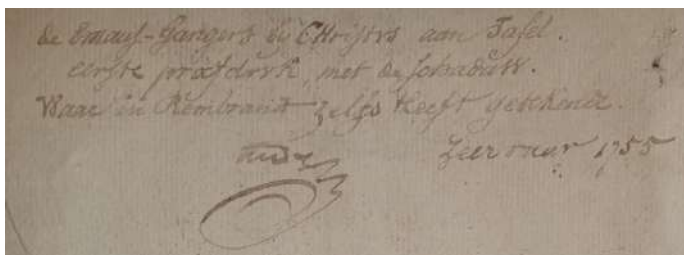 de Emaus-Gangers bij CHristus aan Tafel.
eerste proefdruk, met de schaduw.
Waar in Rembrand zelfs heeft getekend.
zeer raar 1755